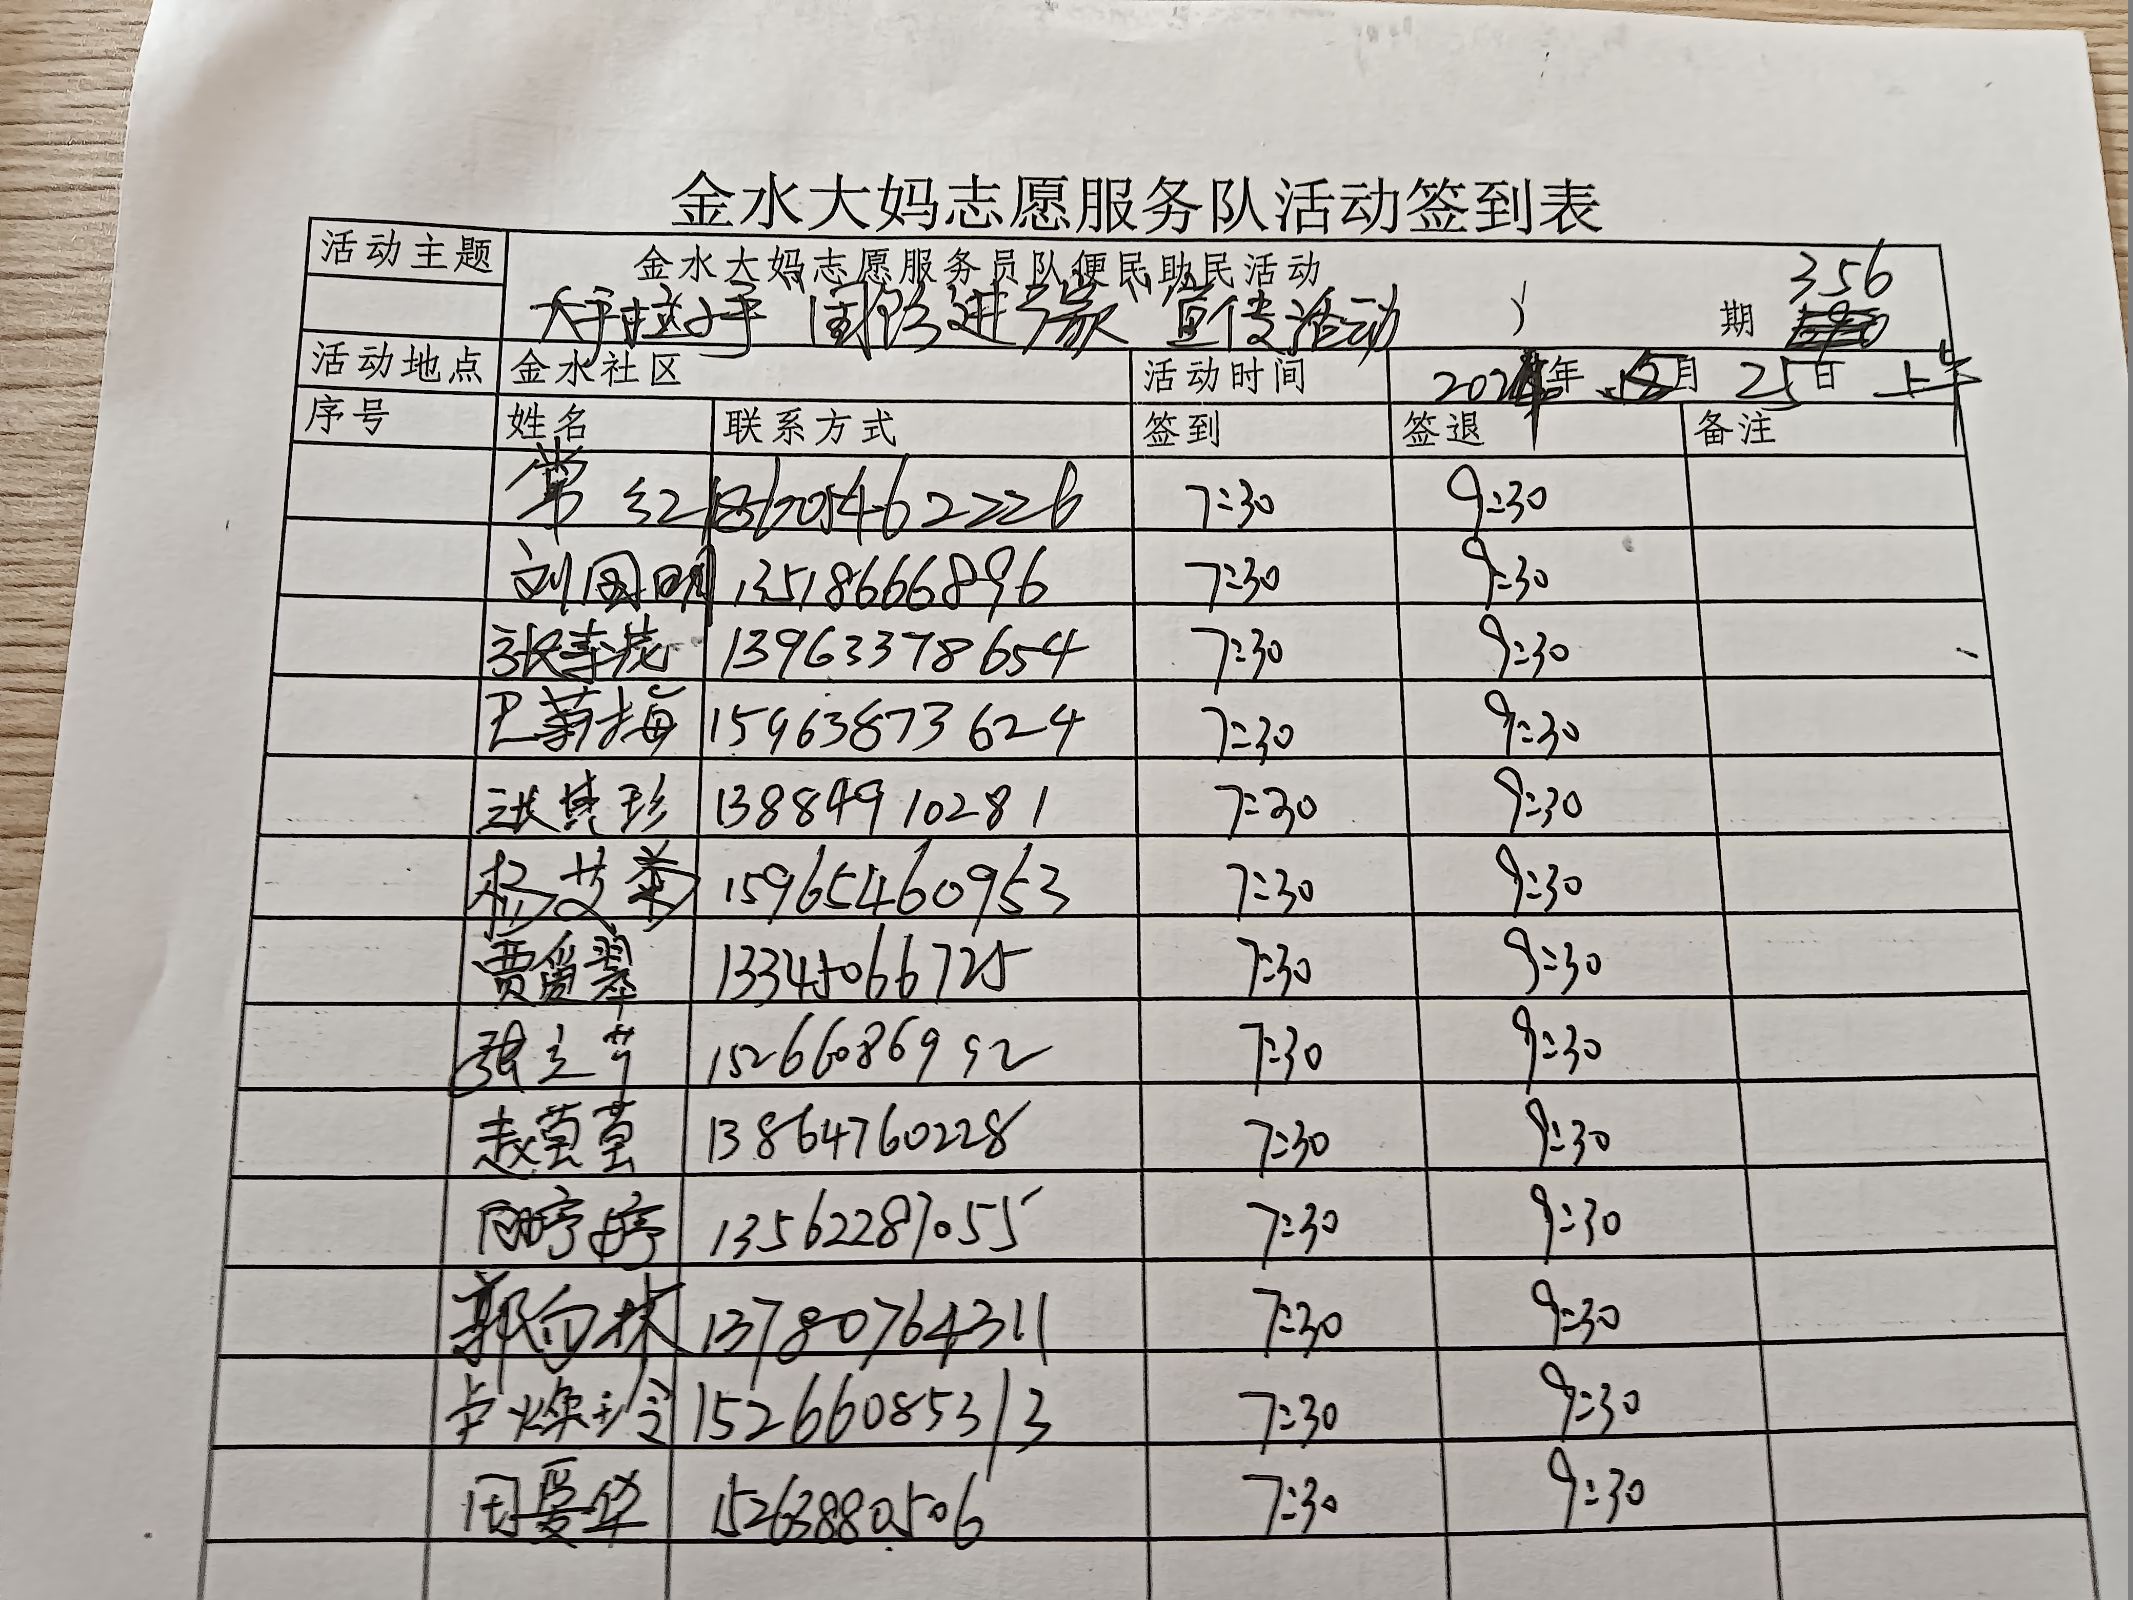 金水大妈志愿服务队活动签到表
活动主题 金水大妈志愿服务员队便民助民活动 356
大手拉小手 宣传活动 期
活动地点 金水社区 活动时间 202 年 月 25日 上午
序号 姓名 联系方式 签到 签退 备注
常红 18605462226 7:30 9:30
刘国明 13518666896 7:30 9:30
13963378654 7:30 9:30
巴菊梅 15963873624 7:30 9:30
13884910281 7:30 9:30
杨艾菊 15965460953 7:30 9:30
贾爱翠 13345066725 7:30 9:30
张立芳 15266086992 7:30 9:30
赵萱萱 13864760228 7:30 9:30
周婷婷 13562287055 7:30 9:30
郭向林 13780764311 7:30 9:30
卢焕玲 15266085313 7:30 9:30
周爱华 15263880506 7:30 9:30